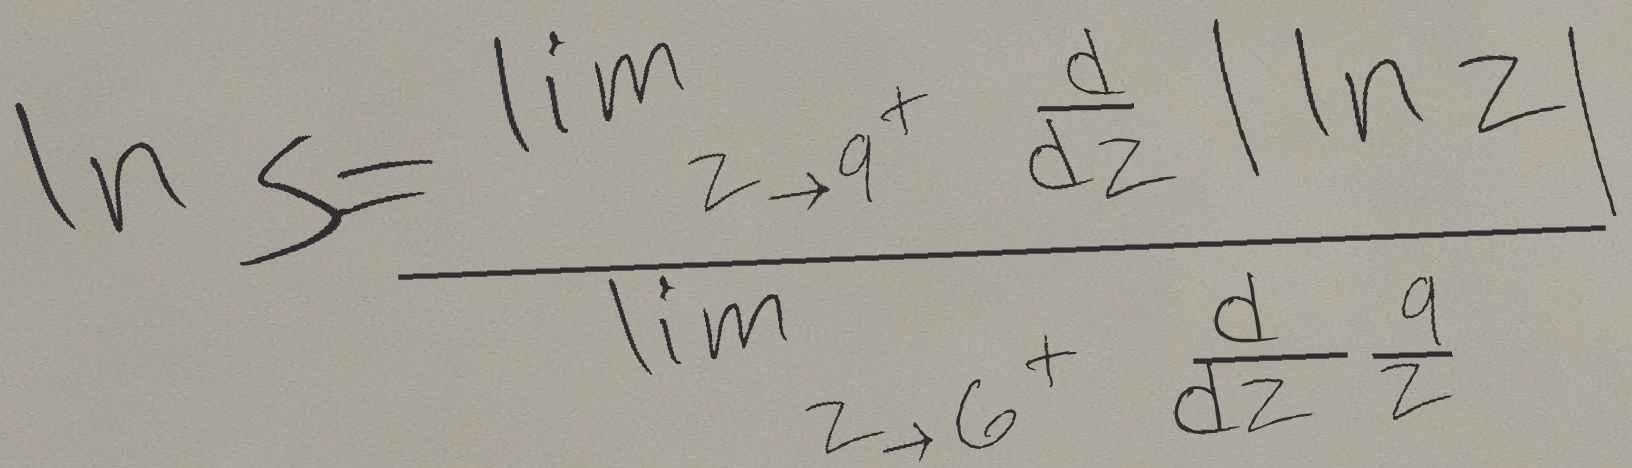 \ln s = \frac{\lim_{z \to 9^+} \frac{d}{dz} |\ln z|}{\lim_{z \to 6^+} \frac{d}{dz} \frac{9}{z}}